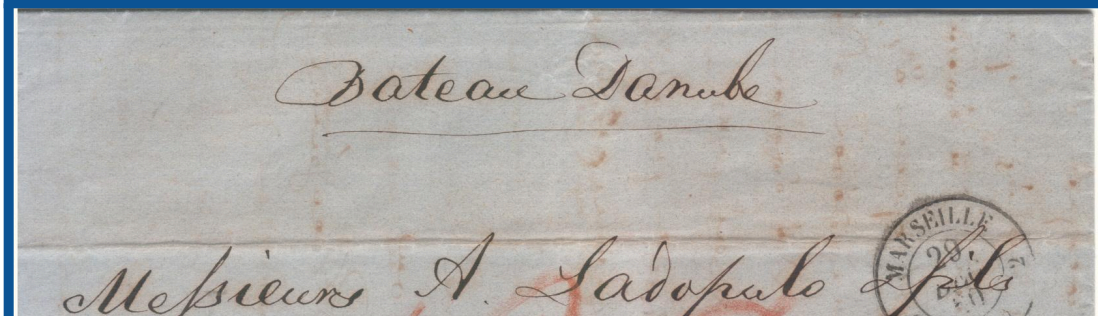 Bateau Danube
Messieurs A. Sadopulo fils
MARSEILLE
20